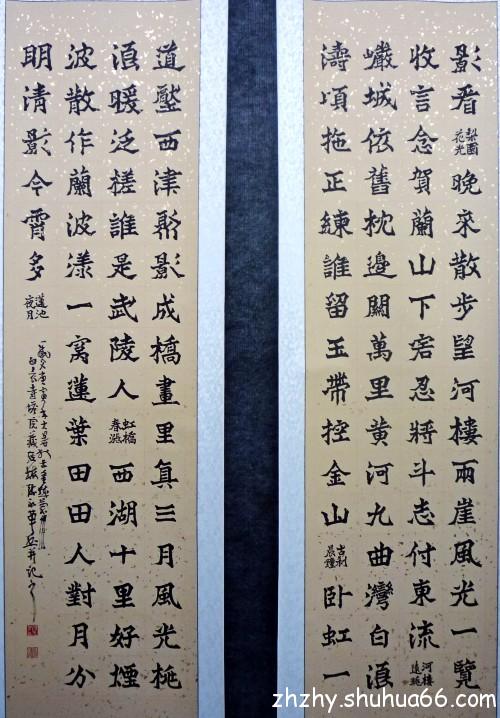 影看
梨園
花光
晚來散步望河樓兩崖風光一覽
收言念賀蘭山下客忍將斗志付東流
河樓
遠眺
城依舊枕邊關萬里黃河九曲灣白浪
濤頃拖正練誰留玉帶控金山
古刹
晨鐘
卧虹一
道壓西津影成橋畫里真三月風光桃
浪暖泛槎誰是武陵人
虹橋
春漲
西湖十里好煙
波散作蘭波漾一窩蓮葉田田人對月分
明清影今宵多
蓮池
夜月
zhzhy.shuhua66.com